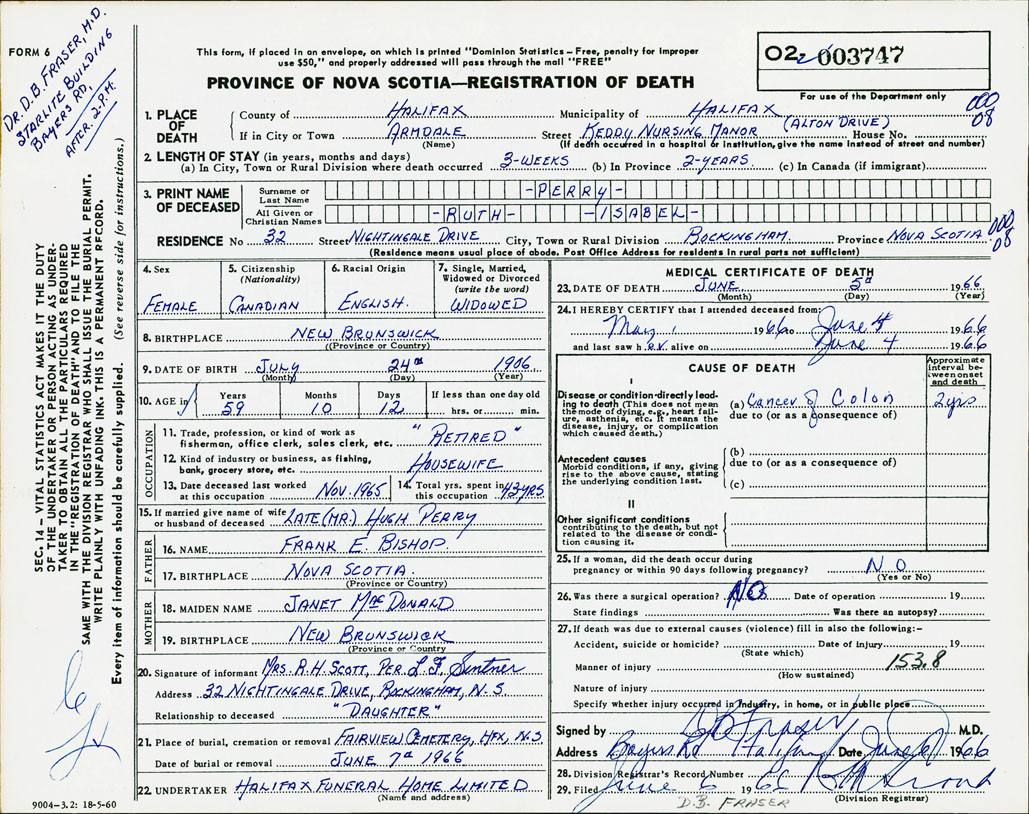 FORM 6
DR. D. B. FRASER, M.D.
STARLITE BUILDING
BAYERS RD,
AFTER. 2-P.M.
This form, if placed in an envelope, on which is printed "Dominion Statistics – Free, penalty for improper
use $50," and properly addressed will pass through the mail "FREE"
PROVINCE OF NOVA SCOTIA—REGISTRATION OF DEATH
O2 003747
For use of the Department only
000
08
1. PLACE OF DEATH
County of HALIFAX Municipality of HALIFAX
(ALTON DRIVE)
If in City or Town ARMDALE Street KEDDY NURSING MANOR House No.
(Name) (If death occurred in a hospital or institution, give the name instead of street and number)
2. LENGTH OF STAY (in years, months and days)
(a) In City, Town or Rural Division where death occurred 3-WEEKS (b) In Province 2-YEARS. (c) In Canada (if immigrant)
3. PRINT NAME OF DECEASED
Surname or Last Name -PERRY-
All Given or Christian Names -RUTH- -ISABEL-
000
08
RESIDENCE No 32 Street NIGHTINGALE DRIVE City, Town or Rural Division ROCKINGHAM. Province NOVA SCOTIA
(Residence means usual place of abode. Post Office Address for residents in rural parts not sufficient)
4. Sex
FEMALE
5. Citizenship
(Nationality)
CANADIAN
6. Racial Origin
ENGLISH.
7. Single, Married,
Widowed or Divorced
(write the word)
WIDOWED
8. BIRTHPLACE NEW BRUNSWICK
(Province or Country)
9. DATE OF BIRTH JULY 24TH 1906
(Month) (Day) (Year)
10. AGE in
Years Months Days If less than one day old
59 10 12 hrs. or min.
OCCUPATION
11. Trade, profession, or kind of work as
fisherman, office clerk, sales clerk, etc. "RETIRED"
12. Kind of industry or business, as fishing,
bank, grocery store, etc. HOUSEWIFE
13. Date deceased last worked
at this occupation NOV. 1965
14. Total yrs. spent in
this occupation 43YRS
15. If married give name of wife
or husband of deceased LATE (MR.) HUGH PERRY
FATHER
16. NAME FRANK E. BISHOP.
17. BIRTHPLACE NOVA SCOTIA.
(Province or Country)
MOTHER
18. MAIDEN NAME JANET MACDONALD
19. BIRTHPLACE NEW BRUNSWICK
(Province or Country)
20. Signature of informant MRS. A.H. SCOTT, PER. L.F. Sentner
Address 32 NIGHTINGALE DRIVE, ROCKINGHAM, N.S.
Relationship to deceased "DAUGHTER"
21. Place of burial, cremation or removal FAIRVIEW CEMETERY, HFX, N.S
Date of burial or removal JUNE 7TH 1966
22. UNDERTAKER HALIFAX FUNERAL HOME LIMITED
(Name and address)
9004–3.2: 18-5-60
MEDICAL CERTIFICATE OF DEATH
23. DATE OF DEATH JUNE 5TH 1966
(Month) (Day) (Year)
24. I HEREBY CERTIFY that I attended deceased from:
May 1 1966 to June 4 1966
and last saw h er alive on June 4 1966
CAUSE OF DEATH
Approximate
interval be-
tween onset
and death
I
Disease or condition directly lead-
ing to death (This does not mean
the mode of dying, e.g., heart fail-
ure, asthenia, etc. It means the
disease, injury, or complication
which caused death.)
(a) Cancer of Colon 2 yrs
due to (or as a consequence of)
Antecedent causes
Morbid conditions, if any, giving
rise to the above cause, stating
the underlying condition last.
(b)
due to (or as a consequence of)
(c)
II
Other significant conditions
contributing to the death, but not
related to the disease or condi-
tion causing it.
25. If a woman, did the death occur during
pregnancy or within 90 days following pregnancy? NO
(Yes or No)
26. Was there a surgical operation? NO Date of operation 19
State findings Was there an autopsy?
27. If death was due to external causes (violence) fill in also the following:–
Accident, suicide or homicide? Date of injury 19
(State which)
Manner of injury 153.8
(How sustained)
Nature of injury
Specify whether injury occurred in industry, in home, or in public place
Signed by D B Fraser M.D.
Address Bayers Rd Halifax Date June 6 1966
28. Division Registrar's Record Number
29. Filed June 6 1966
(Division Registrar)
D.B. FRASER
SEC. 14 – VITAL STATISTICS ACT MAKES IT THE DUTY
OF THE UNDERTAKER OR PERSON ACTING AS UNDER-
TAKER TO OBTAIN ALL THE PARTICULARS REQUIRED
IN THE "REGISTRATION OF DEATH" AND TO FILE THE
SAME WITH THE DIVISION REGISTRAR WHO SHALL ISSUE THE BURIAL PERMIT.
WRITE PLAINLY WITH UNFADING INK. THIS IS A PERMANENT RECORD.
Every item of information should be carefully supplied. (See reverse side for instructions.)